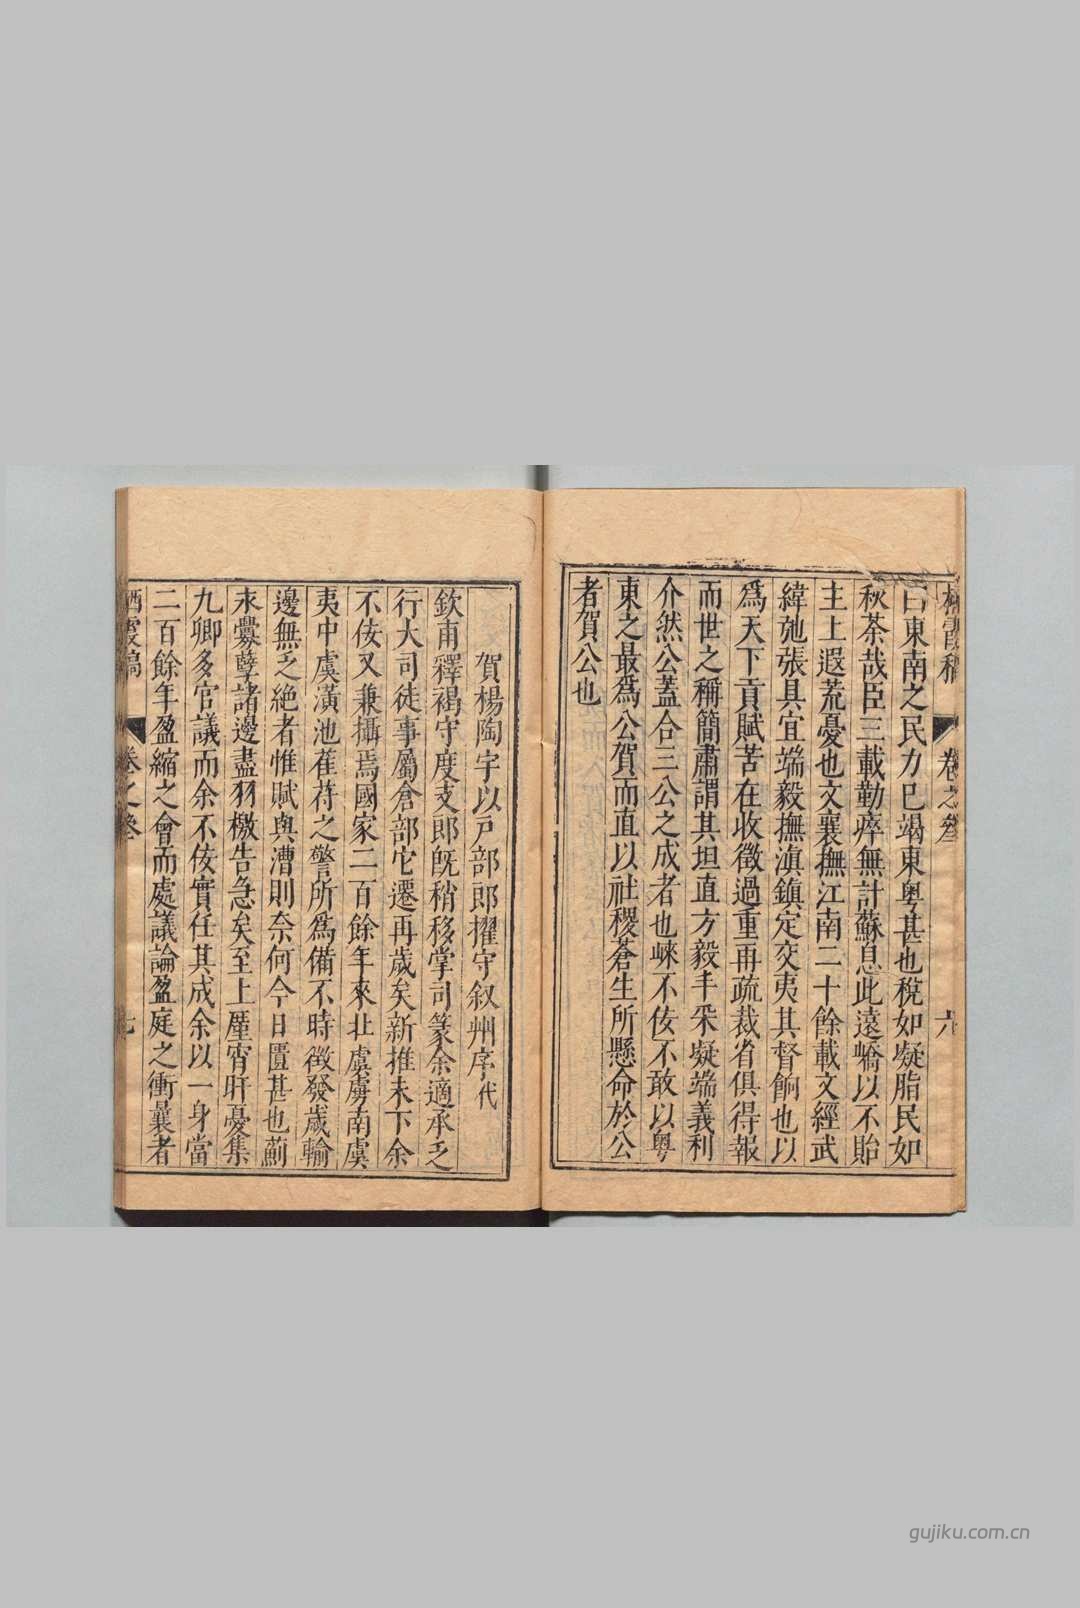 卷之叁
六
曰東南之民力已竭東粤甚也稅如凝脂民如
秋荼哉臣三載勤瘁無計蘇息此遠嶠以不貽
主上遐荒憂也文襄撫江南二十餘載文經武
緯弛張具宜端毅撫滇鎮定交夷其督餉也以
爲天下貢賦苦在收徵過重再疏裁省俱得報
而世之稱簡肅謂其坦直方毅丰采凝端義利
介然公蓋合三公之成者也崍不佞不敢以粤
東之最爲公賀而直以社稷蒼生所懸命於公
者賀公也
賀楊陶宇以戸部郎擢守叙州序代
欽甫釋褐守度支郎旣稍移掌司篆余適承乏
行大司徒事屬倉部它遷再歲矣新推未下余
不佞又兼攝焉國家二百餘年來北虞虜南虞
夷中虞潢池萑苻之警所爲備不時徴發歲輸
邊無乏絶者惟賦與漕則奈何今日匱甚也薊
永釁孽諸邊盡羽檄告急矣至上厪宵旰憂集
九卿多官議而余不佞實任其成余以一身當
二百餘年盈縮之會而處議論盈庭之衝曩者
栖霞稿
卷之叁
七
gujiku.com.cn